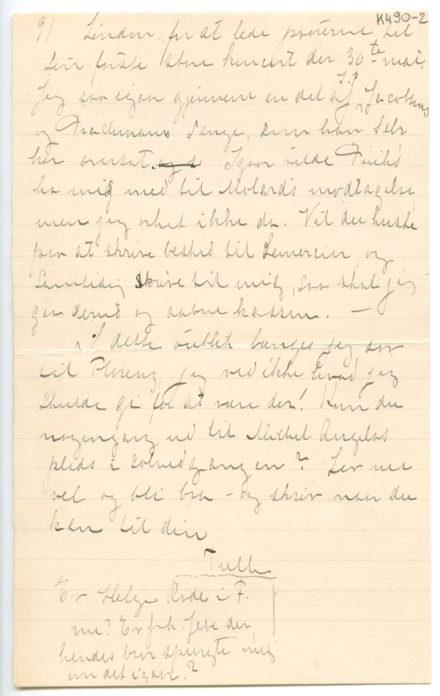 K490-2
9) London for at lede prøverne til
sin første store koncert den 30te mai.
Jeg saa igaar gjennem en del af J. P. Jacobsens
og Drachmanns sange, som han selv
har oversat. Igaar vilde
ha mig med til Molards modtagelse
men jeg orket ikke da. Vil du huske
paa at skrive besked til Lemercier, og
samtidig skrive til mig, saa skal jeg
gaa derned og aabne kassen. —
I dette øieblik længes jeg saa
til Florenz, jeg ved ikke hvad jeg
skulde gi for at være der! Kom du
nogengang ud til Michel Angelos
plads i solnedgangen? Lev nu
vel og bli bra – og skriv naar du
kan til din
Tulla
Er Helge Rode i F.
nu? Er frk. der,
hendes bror spurgte mig
om det igaar?